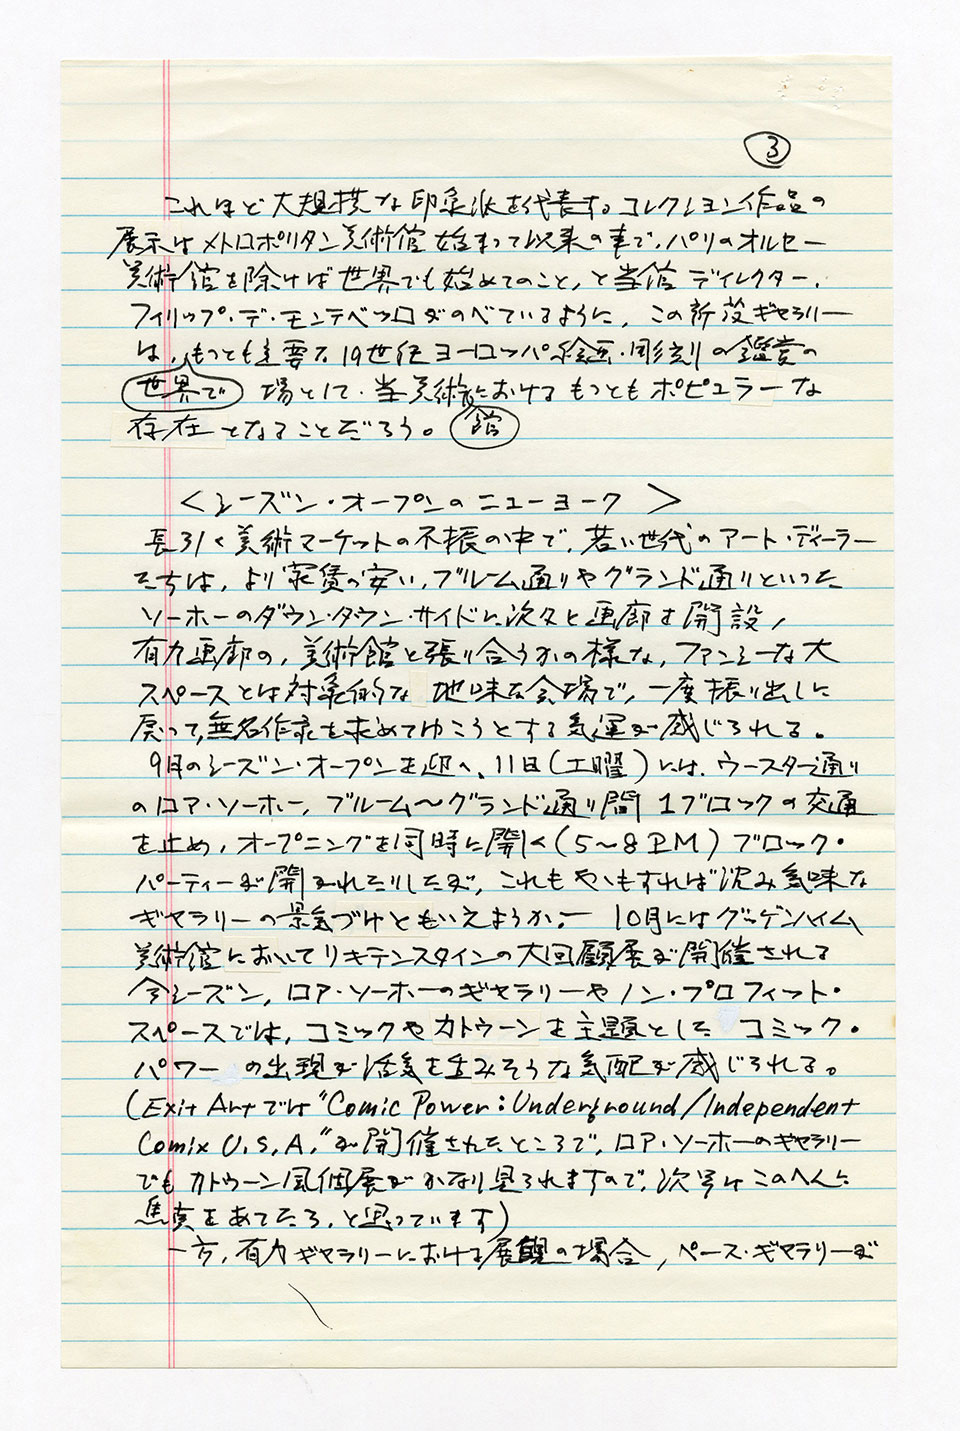 ③
これほど大規模な印象派を代表するコレクション作品の
展示はメトロポリタン美術館始まって以来の事で、パリのオルセー
美術館を除けば世界でも始めてのこと、と当館ディレクター、
フィリップ・デ・モンテベッロがのべているように、この新設ギャラリー
は、もっとも主要な19世紀ヨーロッパ絵画・彫刻の鑑賞の
世界で 場として、当美術におけるもっともポピュラーな
存在となることだろう。 館
＜シーズン・オープンのニューヨーク＞
長引く美術マーケットの不振の中で、若い世代のアート・ディーラー
たちは、より家賃の安い、ブルーム通りやグランド通りといった
ソーホーのダウン・タウン・サイドに次々と画廊を開設、
有力画廊の、美術館と張り合うかの様な、ファンシーな大
スペースとは対象的な 地味な会場で、一度振り出しに
戻って、無名作家を求めてゆこうとする気運が感じられる。
9月のシーズン・オープンを迎へ、11日(土曜)には、ウースター通り
のロア・ソーホー、ブルーム〜グランド通り間1ブロックの交通
を止め、オープニングを同時に開く(5〜8PM)ブロック・
パーティーが開かれたりしたが、これもやいもすれば沈み気味な
ギャラリーの景気づけともいえようか。ー 10月にはグッゲンハイム
美術館においてリキテンスタインの大回顧展が開催される
今シーズン、ロア・ソーホーのギャラリーやノン・プロフィット・
スペースでは、コミックやカトゥーンを主題とした コミック・
パワー の出現が活気を生みそうな気配が感じられる。
(Exit Artでは"Comic Power: Underground/Independent
Comix U.S.A."が開催されたところで、ロア・ソーホーのギャラリー
でもカトゥーン風個展がかなり見られますので、次号はこのへんに
焦点をあてたら、と思っています)
一方、有力ギャラリーにおける展観の場合、ペース・ギャラリーが